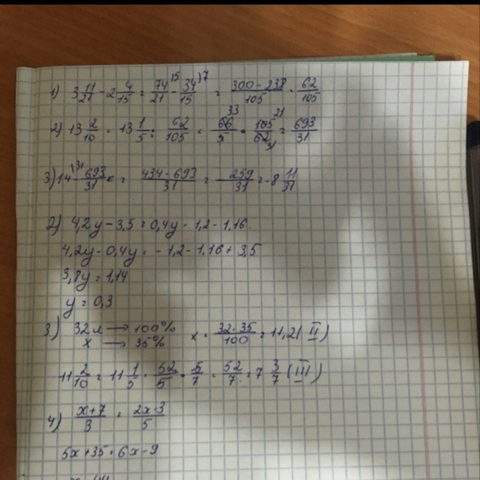 1) 3 11/21 - 2 4/15 = 74/21 15 - 34/15 )7 = 300-238/105 = 62/105
2) 13 2/10 = 13 1/5 : 62/105 = 66/5 33 · 105/62 21 31 = 693/31
3) 14 31 - 693/31 = 434-693/31 = -259/31 = -8 11/31
2) 4,2y - 3,5 = 0,4y - 1,2 - 1,16
4,2y - 0,4y = -1,2 - 1,16 + 3,5
3,8y = 1,14
y = 0,3
3) 32л → 100%
x → 35% x = 32·35/100 = 11,2 (II)
11 2/10 = 11 1/5 · 52/5 · 5/7 = 52/7 = 7 3/7 (III)
4) x+7/3 = 2x-3/5
5x+35=6x-9